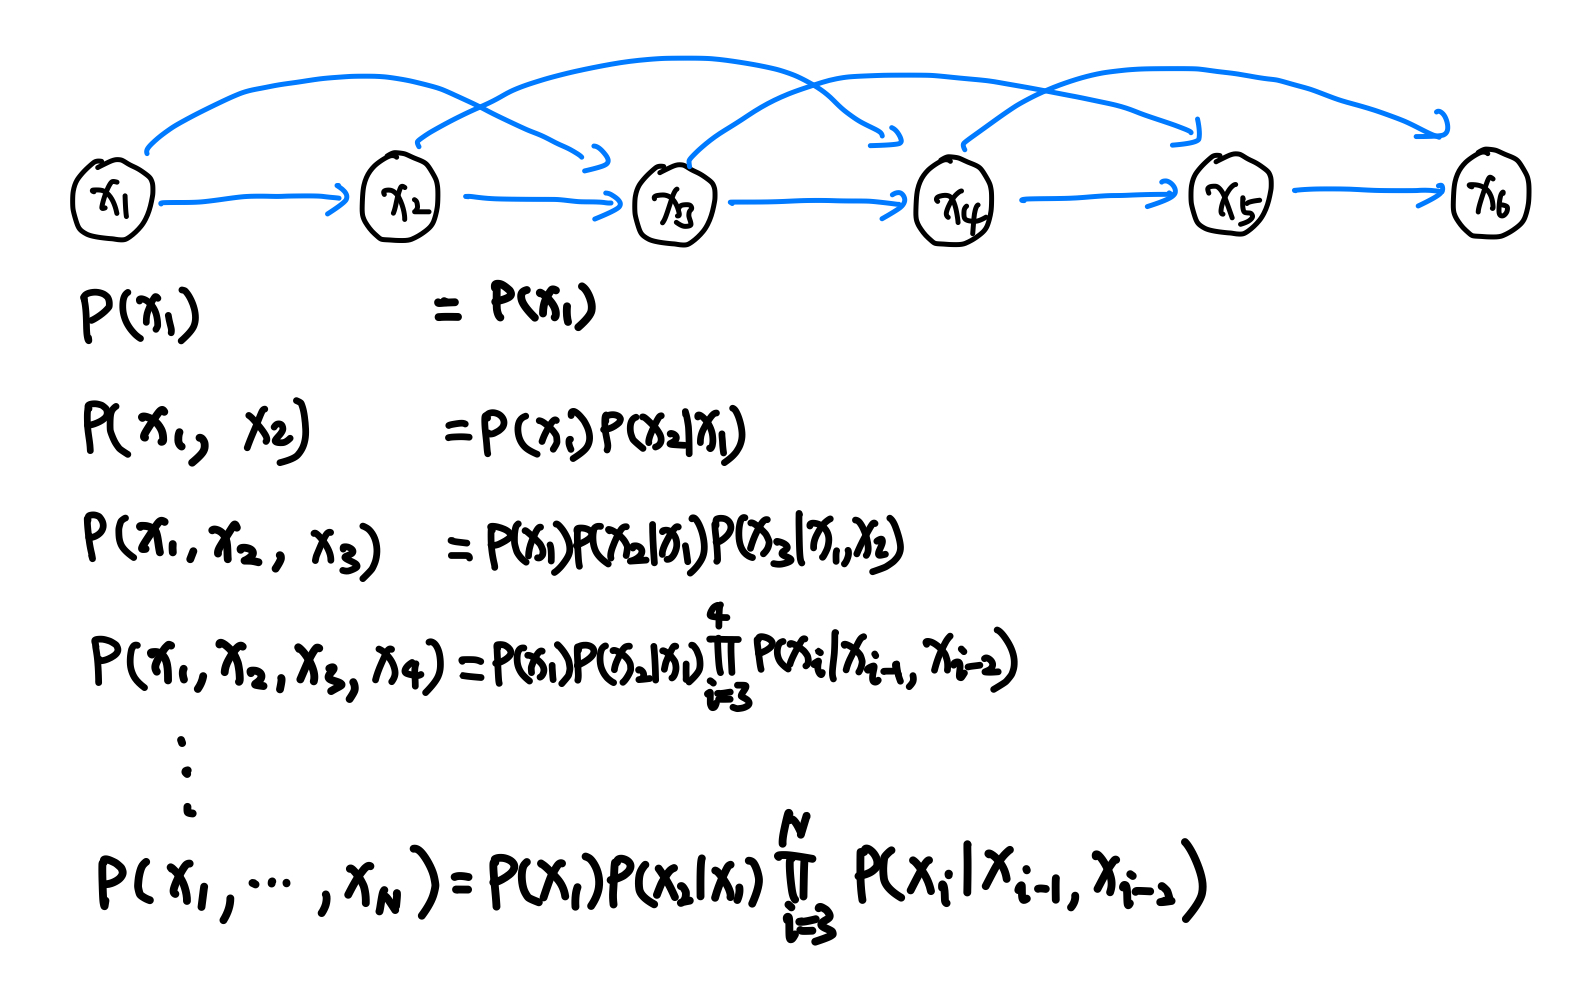 x₁ x₂ x₃ x₄ x₅ x₆
P(x₁) = P(x₁)
P(x₁, x₂) = P(x₁)P(x₂|x₁)
P(x₁, x₂, x₃) = P(x₁)P(x₂|x₁)P(x₃|x₁,x₂)
P(x₁, x₂, x₃, x₄) = P(x₁)P(x₂|x₁)∏_{i=3}^{4} P(x_i|x_{i-1}, x_{i-2})
⋮
P(x₁, ⋯, x_N) = P(x₁)P(x₂|x₁)∏_{i=3}^{N} P(x_i|x_{i-1}, x_{i-2})